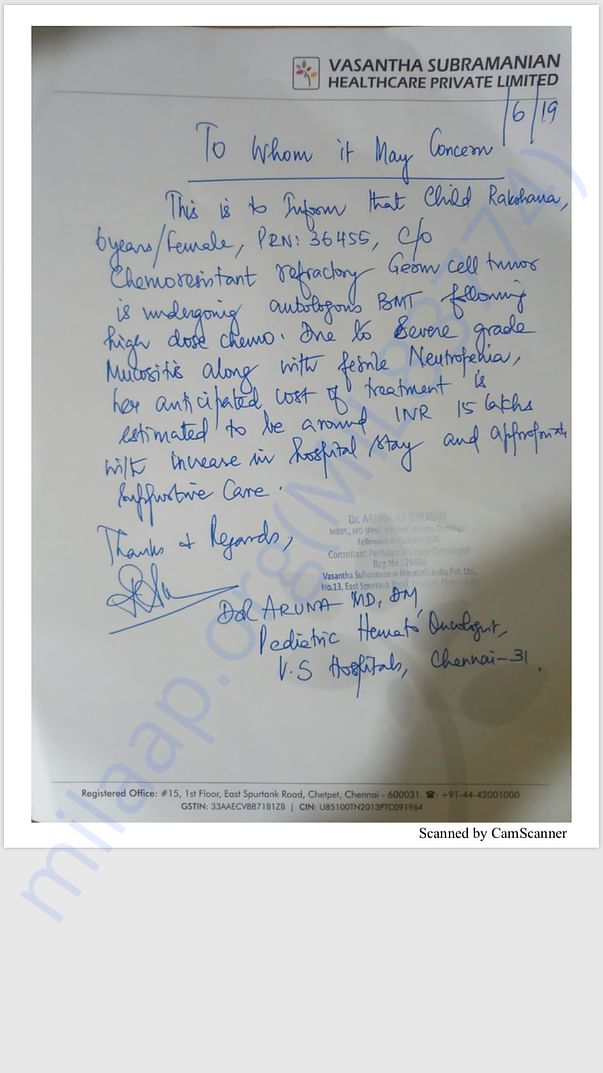 VASANTHA SUBRAMANIAN
HEALTHCARE PRIVATE LIMITED
1/6/19
To Whom it May Concern
This is to Inform that Child Rakshana,
6years/Female, PRN: 36455, C/O
Chemoresistant refractory Germ cell tumor
is undergoing autologous BMT following
high dose chemo. Due to Severe grade
Mucositis along with febrile Neutropenia,
her anticipated cost of treatment is
estimated to be around INR 15 lakhs
with increase in hospital stay and appropriate
supportive Care.
Thanks & Regards,
Dr.
Consultant
Vasantha Subramanian Hospitals India Pvt. Ltd.,
No.13, East Spurtank Road,
DR ARUNA MD, DM
Pediatric Hemato Oncologist,
V.S Hospitals, Chennai-31.
Registered Office: #15, 1st Floor, East Spurtank Road, Chetpet, Chennai - 600031. ☎: +91-44-42001000
GSTIN: 33AAECV8871B1ZB | CIN: U85100TN2013PTC091964
Scanned by CamScanner
milaap.org(MIL83774)